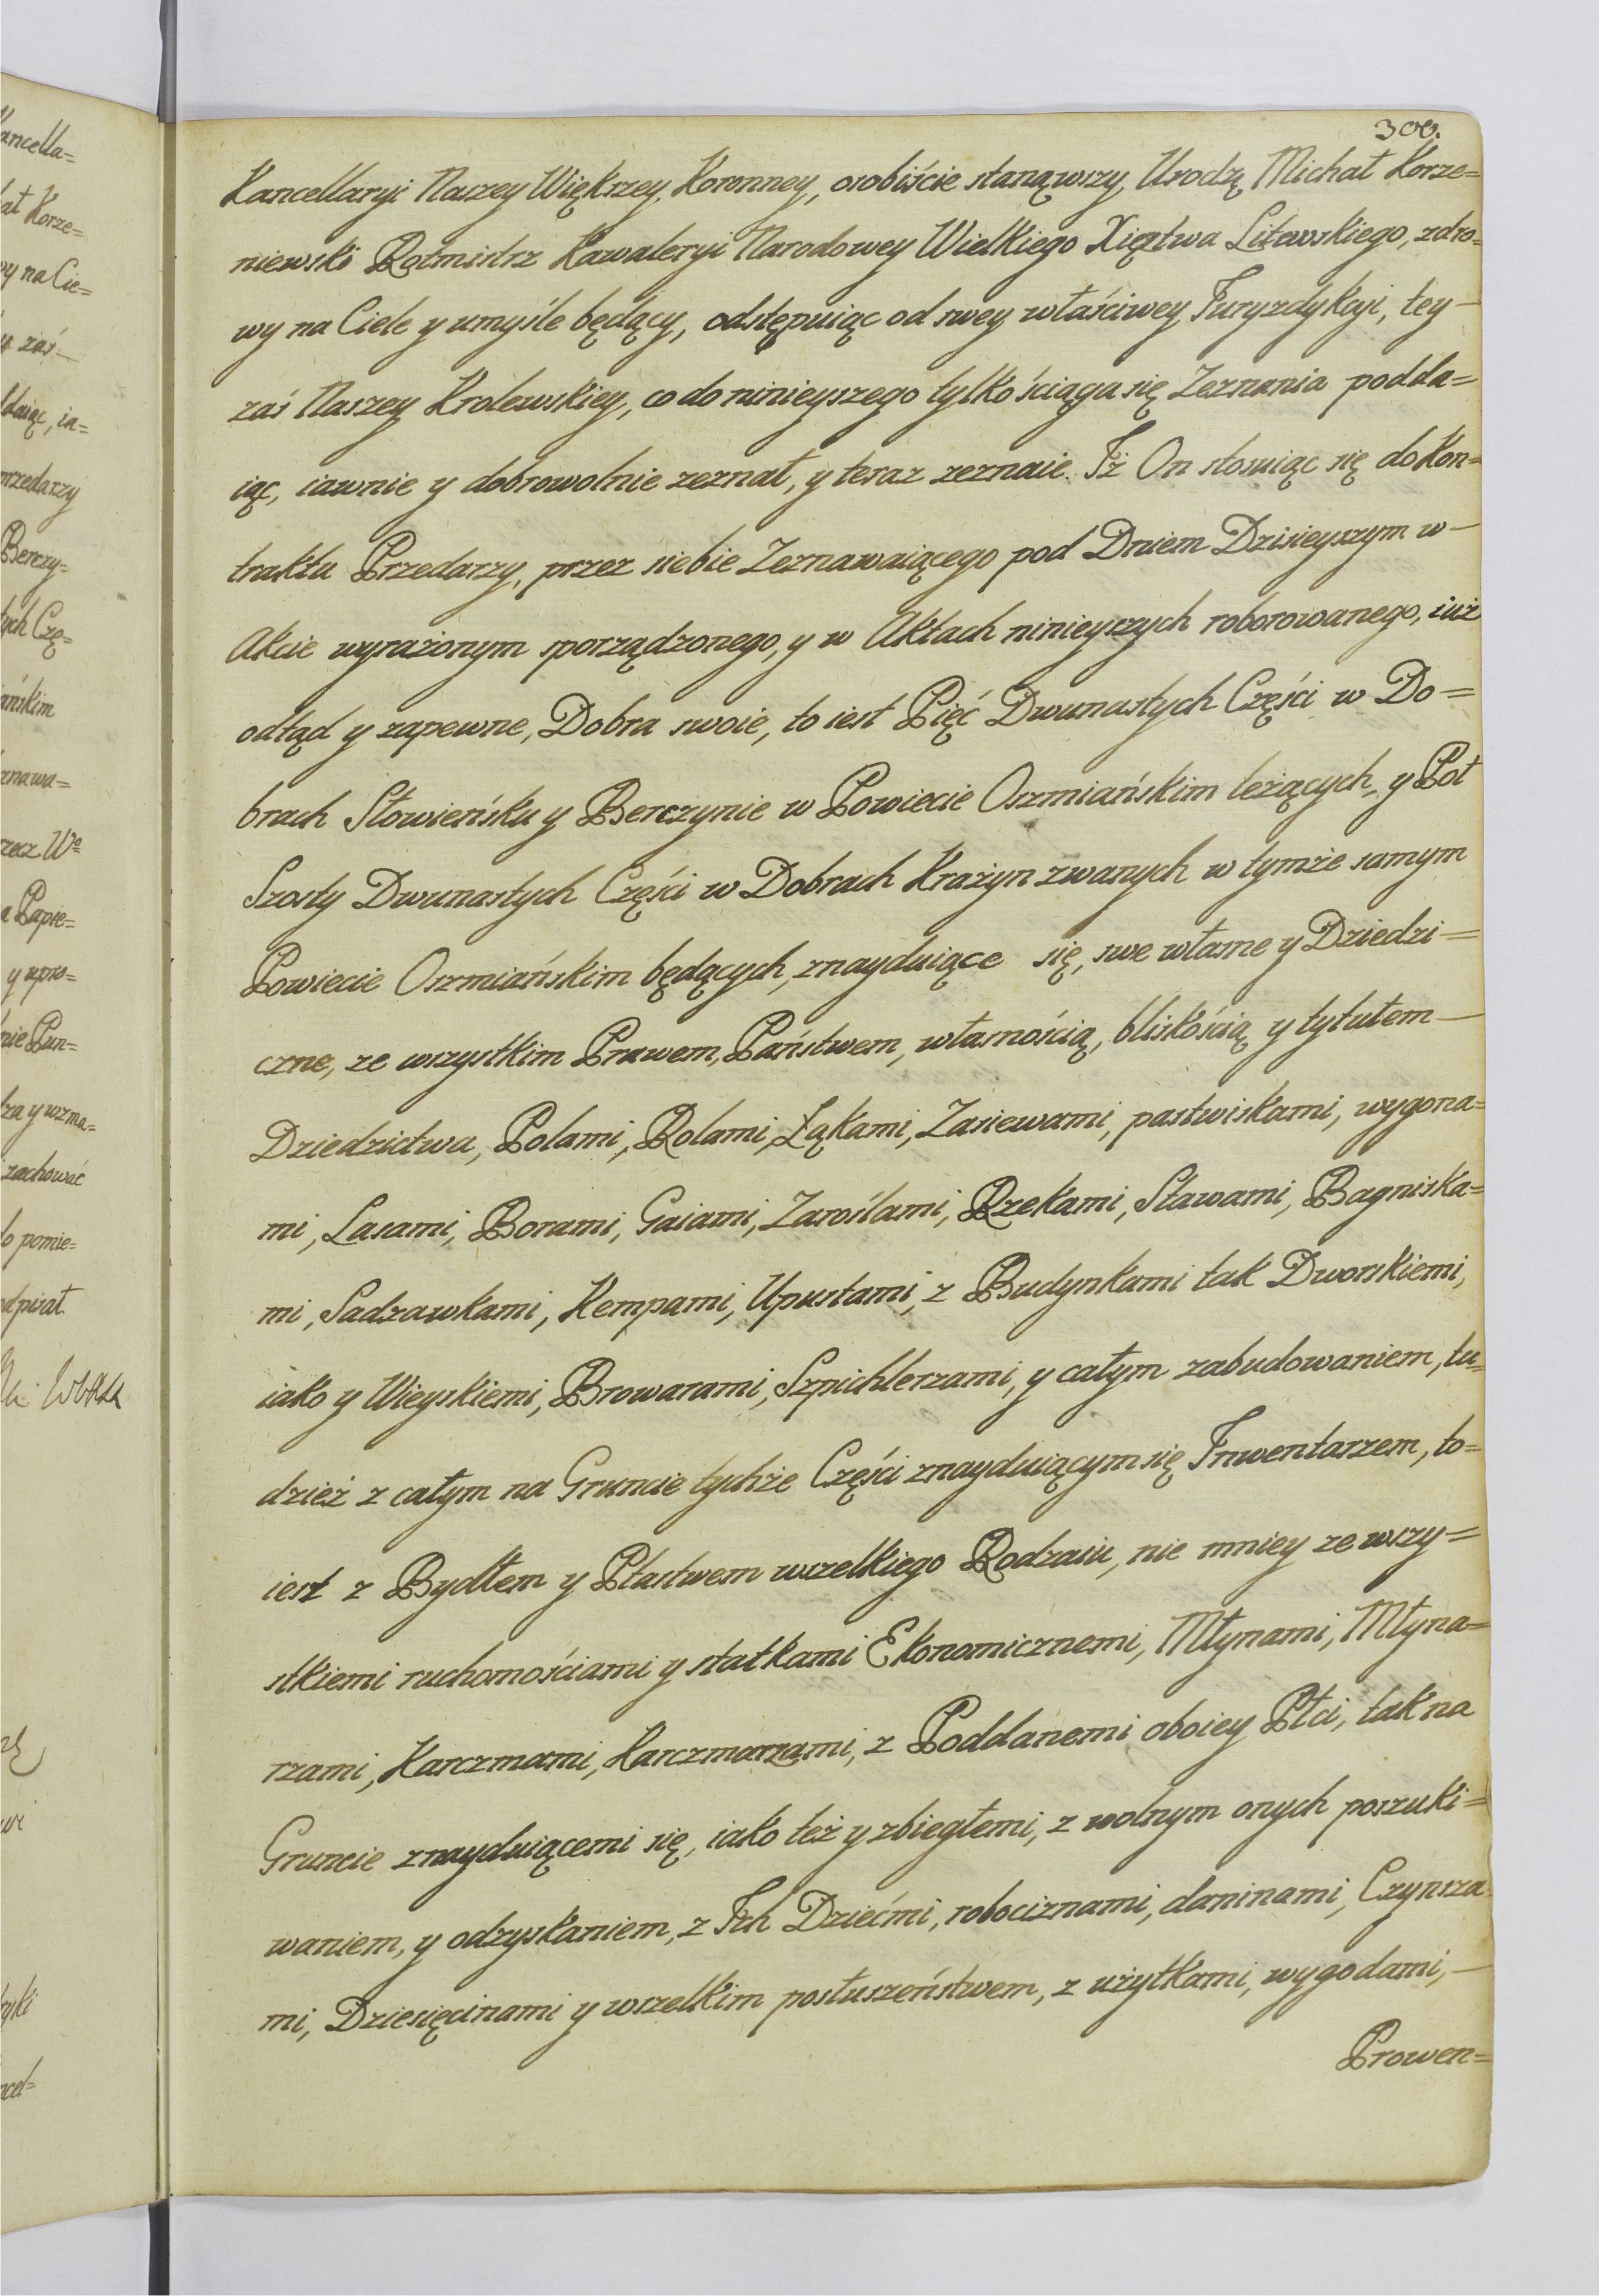 300.
Kancellaryi Naszey Więkrzey Koronney, osobiście stanąwszy, Urodzą Michał Korze=
niewski Rotmistrz Kawaleryi Narodowey Wielkiego Xięstwa Litewskiego, zdro=
wy na Ciele y umyśle będący, odstępuiąc od swey właściwey Juryzdykcyi, tey —
zaś Naszey Krolewskiey, co do ninieyszego tylko ściąga się Zeznania podda=
iąc, iawnie y dobrowolnie zeznał, y teraz zeznaie. Iż On stosuiąc się do Kon=
traktu Przedarzy, przez siebie Zeznawaiącego pod Dniem Dzisieyszym w —
Akcie wyrażonym sporządzonego, y w Aktach ninieyszych roborowanego, iuż
odtąd y zapewne, Dobra swoie, to iest Pięć Dwunastych Części w Do=
brach Słowieńsku y Berczynie w Powiecie Oszmiańskim leżących, y Poł
Szosty Dwunastych Części w Dobrach Krażyn zwanych w tymże samym
Powiecie Oszmiańskim będących, znayduiące się, swe własne y Dziedzi=
czne, ze wszystkim Prawem, Państwem, własnością, bliskością y tytułem —
Dziedzictwa, Polami, Rolami, Łąkami, Zasiewami, pastwiskami, wygona=
mi, Lasami, Borami, Gaiami, Zaroślami, Rzekami, Stawami, Bagniska=
mi, Sadzawkami, Kempami, Upustami, z Budynkami tak Dworskiemi,
iako y Wieyskiemi, Browarami, Szpichlerzami, y całym zabudowaniem, tu=
dzież z całym na Gruncie tychże Części znayduiącym się Inwentarzem, to=
iest z Bydłem y Ptastwem wszelkiego Rodzaiu, nie mniey ze wszy=
stkiemi ruchomościami y statkami Ekonomicznemi, Młynami, Młyna=
rzami, Karczmami, Karczmarzami, z Poddanemi oboiey Płci, tak na
Gruncie znayduiącemi się, iako też y zbiegłemi, z wolnym onych poszuki=
waniem, y odzyskaniem, z Ich Dziećmi, robociznami, daninami, Czynsza=
mi, Dziesięcinami y wszelkim posłuszeństwem, z użytkami, wygodami, —
Prowen=